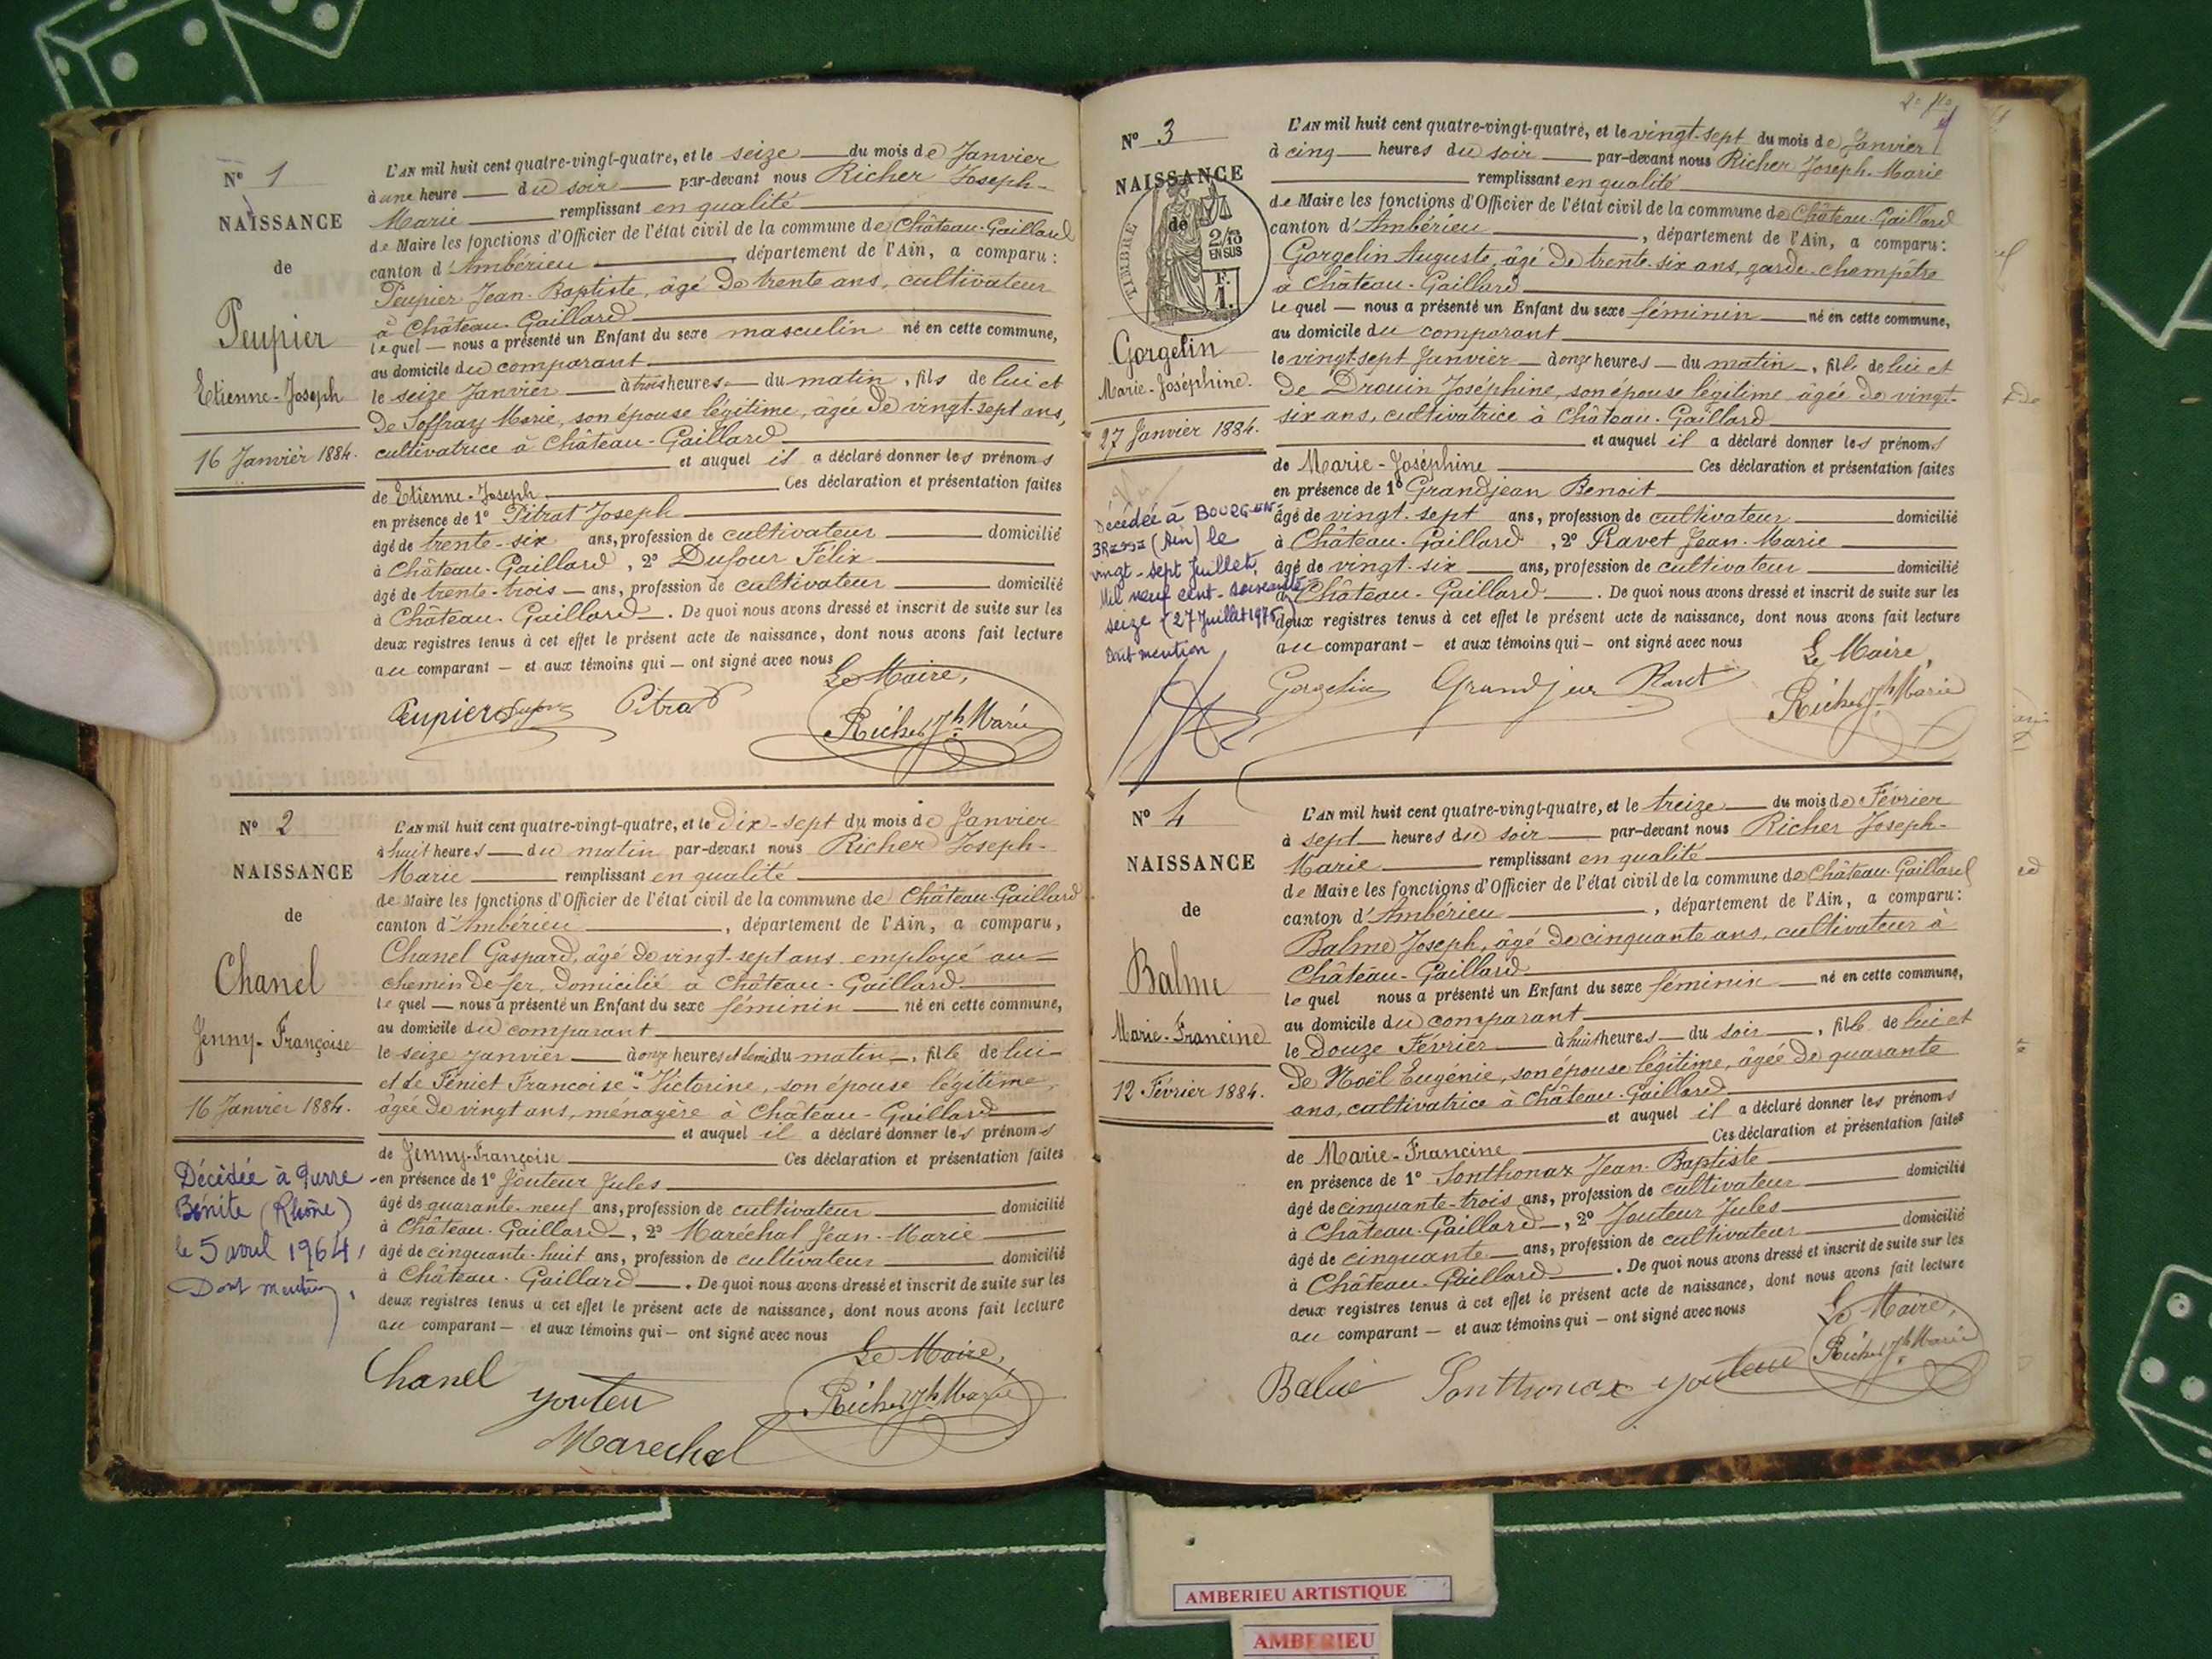 N° 1
NAISSANCE
de
Peupier
Etienne-Joseph
16 Janvier 1884.
L'AN mil huit cent quatre-vingt-quatre, et le seize du mois de Janvier
à une heure du soir par-devant nous Richer Joseph-
Marie remplissant en qualité
de Maire les fonctions d'Officier de l'état civil de la commune de Château-Gaillard
canton d'Ambérieu, département de l'Ain, a comparu:
Peupier Jean-Baptiste, âgé de trente ans, cultivateur
à Château-Gaillard
lequel — nous a présenté un Enfant du sexe masculin né en cette commune,
au domicile du comparant
le seize Janvier à trois heures du matin, fils de lui et
de Soffray Marie, son épouse légitime, âgée de vingt-sept ans,
cultivatrice à Château-Gaillard
et auquel il a déclaré donner les prénoms
de Etienne-Joseph Ces déclaration et présentation faites
en présence de 1° Pitrat Joseph
âgé de trente-six ans, profession de cultivateur domicilié
à Château-Gaillard, 2° Dufour Félix
âgé de trente-trois — ans, profession de cultivateur domicilié
à Château-Gaillard. De quoi nous avons dressé et inscrit de suite sur les
deux registres tenus à cet effet le présent acte de naissance, dont nous avons fait lecture
au comparant — et aux témoins qui — ont signé avec nous
Le Maire,
Peupier Dufour Pitrat Richer Jh Marie
N° 2
NAISSANCE
de
Chanel
Jenny-Françoise
16 Janvier 1884.
Décédée à Pierre
Bénite (Rhône)
le 5 avril 1964,
Dont mention.
L'AN mil huit cent quatre-vingt-quatre, et le Dix-sept du mois de Janvier
à huit heures du matin par-devant nous Richer Joseph-
Marie remplissant en qualité
de Maire les fonctions d'Officier de l'état civil de la commune de Château-Gaillard
canton d'Ambérieu, département de l'Ain, a comparu,
Chanel Gaspard, âgé de vingt-sept ans employé au
chemin de fer, domicilié à Château-Gaillard
lequel — nous a présenté un Enfant du sexe féminin né en cette commune,
au domicile du comparant
le seize Janvier à onze heures et demi du matin, fille de lui
et de Féniet Francoise-Victorine, son épouse légitime,
âgée de vingt ans, ménagère à Château-Gaillard
et auquel il a déclaré donner les prénoms
de Jenny-Françoise Ces déclaration et présentation faites
en présence de 1° Jouteur Jules
âgé de quarante-neuf ans, profession de cultivateur domicilié
à Château-Gaillard, 2° Maréchal Jean-Marie
âgé de cinquante-huit ans, profession de cultivateur domicilié
à Château-Gaillard. De quoi nous avons dressé et inscrit de suite sur les
deux registres tenus à cet effet le présent acte de naissance, dont nous avons fait lecture
au comparant — et aux témoins qui — ont signé avec nous
Le Maire,
Chanel Richer Jh Marie
Marechal
N° 3
NAISSANCE
de
TIMBRE
2/10
EN SUS
F.
1.
Gorgelin
Marie-Joséphine.
27 Janvier 1884.
Décédée à BOURG-EN-
BRESSE (Ain) le
vingt-sept Juillet,
Mil neuf cent-soixante
seize (27 Juillet 1976)
Dont mention
L'AN mil huit cent quatre-vingt-quatre, et le vingt-sept du mois de Janvier
à cinq heures du soir par-devant nous Richer Joseph-Marie
remplissant en qualité
de Maire les fonctions d'Officier de l'état civil de la commune de Château-Gaillard
canton d'Ambérieu, département de l'Ain, a comparu:
Gorgelin Auguste, âgé de trente-six ans, garde-champêtre
à Château-Gaillard
lequel — nous a présenté un Enfant du sexe féminin né en cette commune,
au domicile du comparant
le vingt-sept Janvier à onze heures — du matin, fille de lui et
de Drouin Joséphine, son épouse légitime âgée de vingt-
six ans, cultivatrice à Château-Gaillard
et auquel il a déclaré donner les prénoms
de Marie-Joséphine Ces déclaration et présentation faites
en présence de 1° Grandjean Benoit
âgé de vingt-sept ans, profession de cultivateur domicilié
à Château-Gaillard, 2° Ravet Jean-Marie
âgé de vingt-six ans, profession de cultivateur domicilié
à Château-Gaillard. De quoi nous avons dressé et inscrit de suite sur les
deux registres tenus à cet effet le présent acte de naissance, dont nous avons fait lecture
au comparant — et aux témoins qui — ont signé avec nous
Le Maire,
Gorgelin Grandjean Ravet Richer Jh Marie
N° 4
NAISSANCE
de
Balme
Marie-Francine
12 Février 1884.
L'AN mil huit cent quatre-vingt-quatre, et le treize du mois de Février
à sept heures du soir par-devant nous Richer Joseph-
Marie remplissant en qualité
de Maire les fonctions d'Officier de l'état civil de la commune de Château-Gaillard
canton d'Ambérieu, département de l'Ain, a comparu:
Balme Joseph, âgé de cinquante ans, cultivateur à
Château-Gaillard
lequel nous a présenté un Enfant du sexe féminin né en cette commune,
au domicile du comparant
le douze Février à huit heures — du soir, fille de lui et
de Noël Eugénie, son épouse légitime, âgée de quarante
ans, cultivatrice à Château-Gaillard
et auquel il a déclaré donner les prénoms
de Marie-Francine Ces déclaration et présentation faites
en présence de 1° Sonthonax Jean-Baptiste
âgé de cinquante-trois ans, profession de cultivateur domicilié
à Château-Gaillard, 2° Jouteur Jules
âgé de cinquante ans, profession de cultivateur domicilié
à Château-Gaillard. De quoi nous avons dressé et inscrit de suite sur les
deux registres tenus à cet effet le présent acte de naissance, dont nous avons fait lecture
au comparant — et aux témoins qui — ont signé avec nous
Le Maire,
Balme Sonthonax Jouteur Richer Jh Marie
AMBERIEU ARTISTIQUE
AMBERIEU